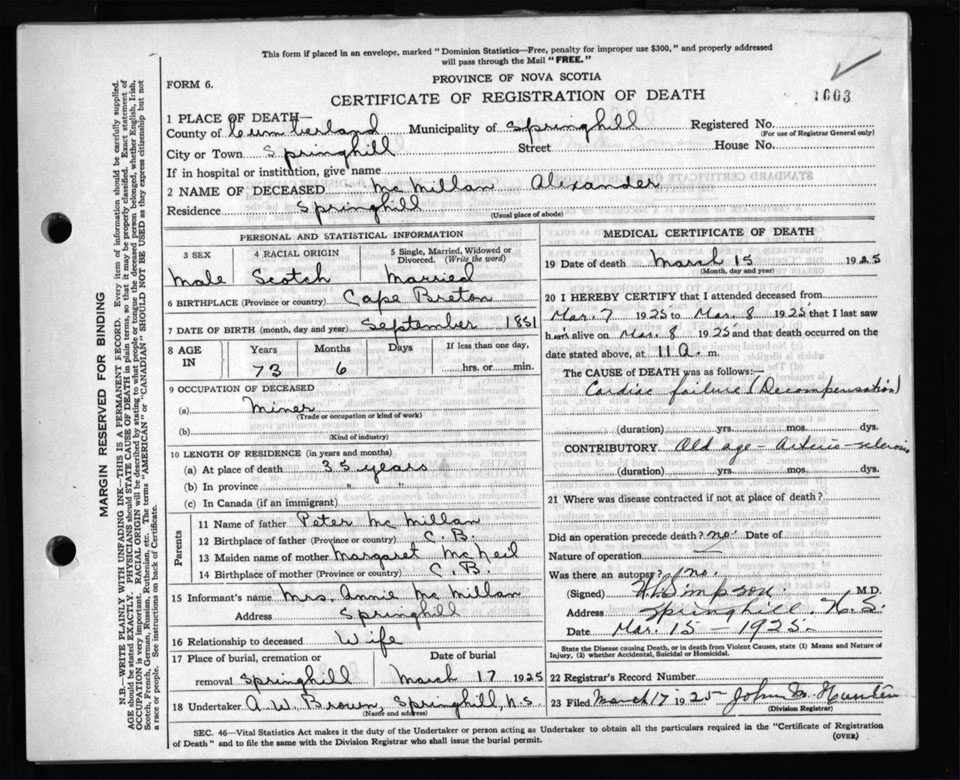 This form if placed in an envelope, marked "Dominion Statistics—Free, penalty for improper use $300," and properly addressed
will pass through the Mail "FREE."
PROVINCE OF NOVA SCOTIA
FORM 6.
CERTIFICATE OF REGISTRATION OF DEATH
1003
1 PLACE OF DEATH—
County of Cumberland Municipality of Springhill Registered No.
(For use of Registrar General only)
City or Town Springhill Street House No.
If in hospital or institution, give name
2 NAME OF DECEASED McMillan Alexander
Residence Springhill
(Usual place of abode)
PERSONAL AND STATISTICAL INFORMATION
3 SEX 4 RACIAL ORIGIN 5 Single, Married, Widowed or
Divorced. (Write the word)
Male Scotch Married
6 BIRTHPLACE (Province or country) Cape Breton
7 DATE OF BIRTH (month, day and year) September 1851
8 AGE IN Years Months Days If less than one day,
73 6 hrs. or min.
9 OCCUPATION OF DECEASED
(a) Miner
(Trade or occupation or kind of work)
(b)
(Kind of industry)
10 LENGTH OF RESIDENCE (in years and months)
(a) At place of death 35 years
(b) In province "
(c) In Canada (if an immigrant)
Parents
11 Name of father Peter McMillan
12 Birthplace of father (Province or country) C.B.
13 Maiden name of mother Margaret McNeil
14 Birthplace of mother (Province or country) C.B.
15 Informant's name Mrs. Annie McMillan
Address Springhill
16 Relationship to deceased Wife
17 Place of burial, cremation or Date of burial
removal Springhill March 17 1925
18 Undertaker A.W. Brown, Springhill, N.S.
(Name and address)
MEDICAL CERTIFICATE OF DEATH
19 Date of death March 15 1925
(Month, day and year)
20 I HEREBY CERTIFY that I attended deceased from
Mar. 7 1925 to Mar. 8 1925 that I last saw
him alive on Mar. 8 1925 and that death occurred on
date stated above, at 11 a. m.
The CAUSE OF DEATH was as follows:—
Cardiac failure (Decompensation)
(duration) yrs. mos. dys.
CONTRIBUTORY Old age - Arterio-sclerosis
(duration) yrs. mos. dys.
21 Where was disease contracted if not at place of death?
Did an operation precede death? no. Date of
Nature of operation —
Was there an autopsy? no.
(Signed) Simpson M.D.
Address Springhill. N.S.
Date Mar. 15 - 1925.
State the Disease causing Death, or in death from Violent Causes, state (1) Means and Nature of
Injury, (2) whether Accidental, Suicidal or Homicidal.
22 Registrar's Record Number
23 Filed March 17 1925 John Hunter
(Division Registrar)
SEC. 46—Vital Statistics Act makes it the duty of the Undertaker or person acting as Undertaker to obtain all the particulars required in the "Certificate of Registration
of Death" and to file the same with the Division Registrar who shall issue the burial permit.
(OVER)
MARGIN RESERVED FOR BINDING
N.B.—WRITE PLAINLY WITH UNFADING INK—THIS IS A PERMANENT RECORD. Every item of information should be carefully supplied.
AGE should be stated EXACTLY. PHYSICIANS should STATE CAUSE OF DEATH in plain terms, so that it may be properly classified. Exact statement of
OCCUPATION is very important. RACIAL ORIGIN will be described by stating to what people or tongue the deceased person belonged, whether English, Irish,
Scotch, French, German, Russian, Ruthenian, etc. The terms "AMERICAN" or "CANADIAN" SHOULD NOT BE USED as they express citizenship but not
a race or people. See instructions on back of Certificate.